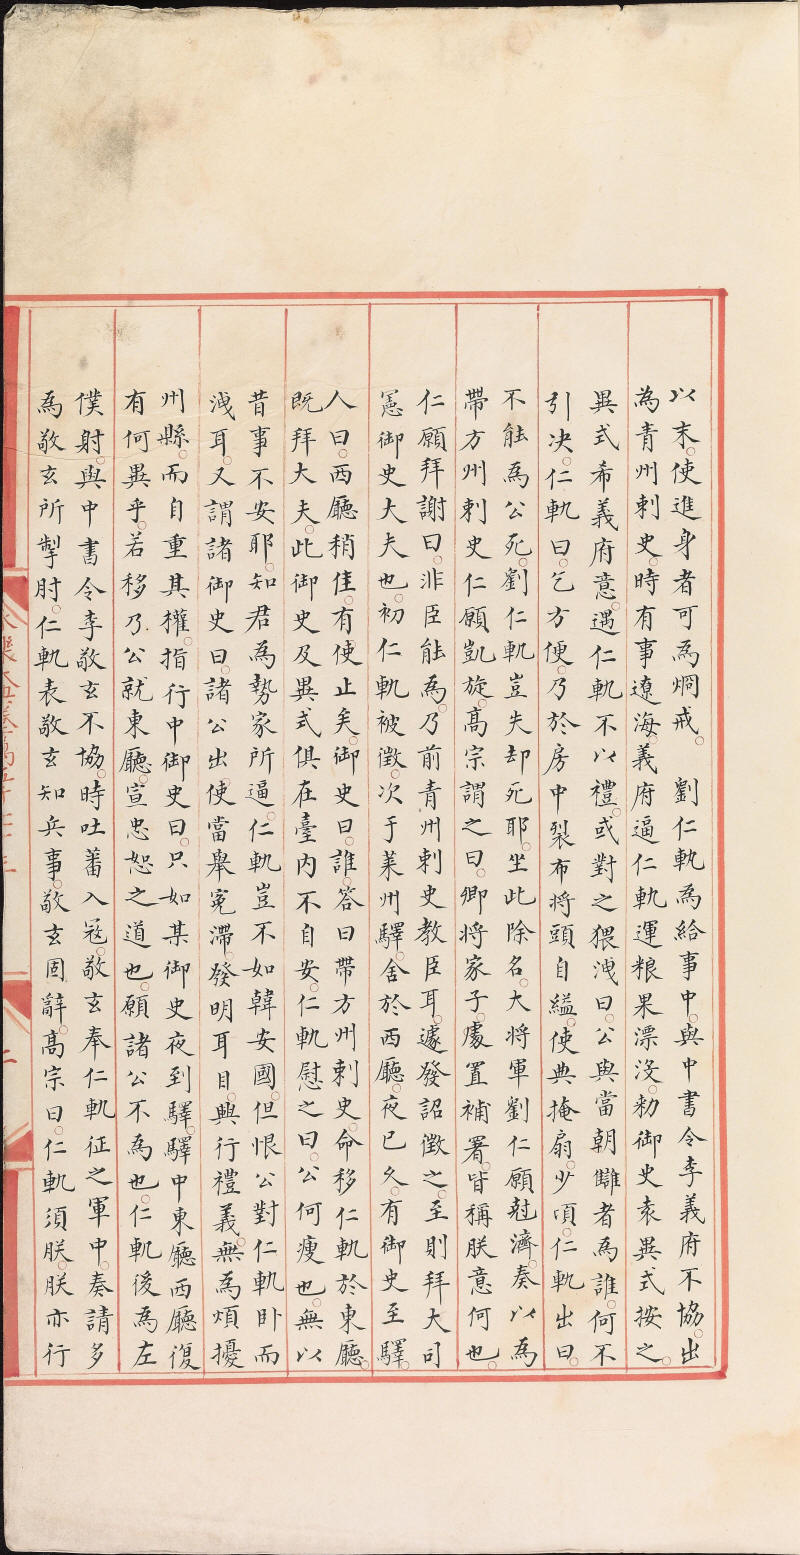 以末。使進身者可為烱戒。　劉仁軌為給事中。與中書令李義府不協。出
為青州刺史。時有事遼海。義府逼仁軌運粮果漂沒。勑御史袁異式按之。
異式希義府意。遇仁軌不以禮。或對之猥洩曰。公與當朝讎者為誰。何不
引決。仁軌曰。乞方便。乃於房中裂布將頭自縊。使典掩扇。少頃。仁軌出曰。
不能為公死。劉仁軌豈失却死耶。坐此除名。大將軍劉仁願尅濟。奏以為
帶方州刺史仁願凱旋。高宗謂之曰。卿將家子。處置補署。皆稱朕意何也。
仁願拜謝曰。非臣能為。乃前青州刺史教臣耳。遽發詔徵之。至則拜大司
憲御史大夫也。初仁軌被徵。次于萊州驛。舍於西廳。夜已久。有御史至驛。
人曰。西廳稍佳。有使止矣。御史曰。誰。答曰帶方州刺史。命移仁軌於東廳。
既拜大夫。此御史及異式俱在臺内不自安。仁軌慰之曰。公何瘦也。無以
昔事不安耶。知君為勢家所逼。仁軌豈不如韓安國。但恨公對仁軌卧而
洩耳。又謂諸御史曰。諸公出使。當舉寃滯。發明耳目。興行禮義。無為煩擾
州縣。而自重其權。指行中御史曰。只如某御史夜到驛。驛中東廳西廳復
有何異乎。若移乃公就東廳。宣忠恕之道也。願諸公不為也。仁軌後為左
僕射。與中書令李敬玄不協。時吐蕃入寇。敬玄奉仁軌征之軍中。奏請多
為敬玄所掣肘。仁軌表敬玄知兵事。敬玄固辭。高宗曰。仁軌須朕。朕亦行